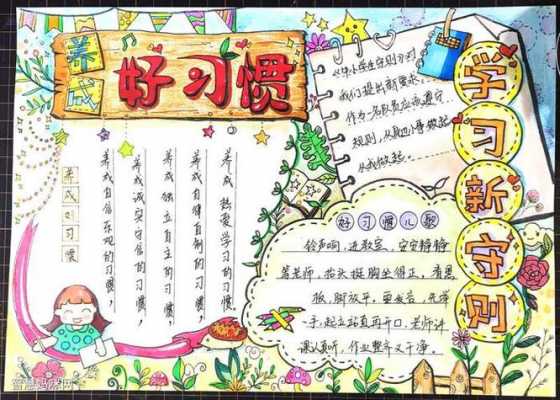 养成
好习惯
学习新守则
《中小学生守则》对
我们提出新要求。
作为一名队员应该遵守
规则，从小事做起
从我做起。
养成好习惯
养成热爱学习的习惯，
养成自律自制的习惯，
养成独立自主的习惯，
养成诚实守信的习惯，
养成自信乐观的习惯，
好习惯儿歌
铃声响，进教室，安安静静
等老师，抬头挺胸坐得正，看黑
板，脚放平。要发言，先举
手，起立站直再开口，老师讲
课认真听，作业整齐又干净。